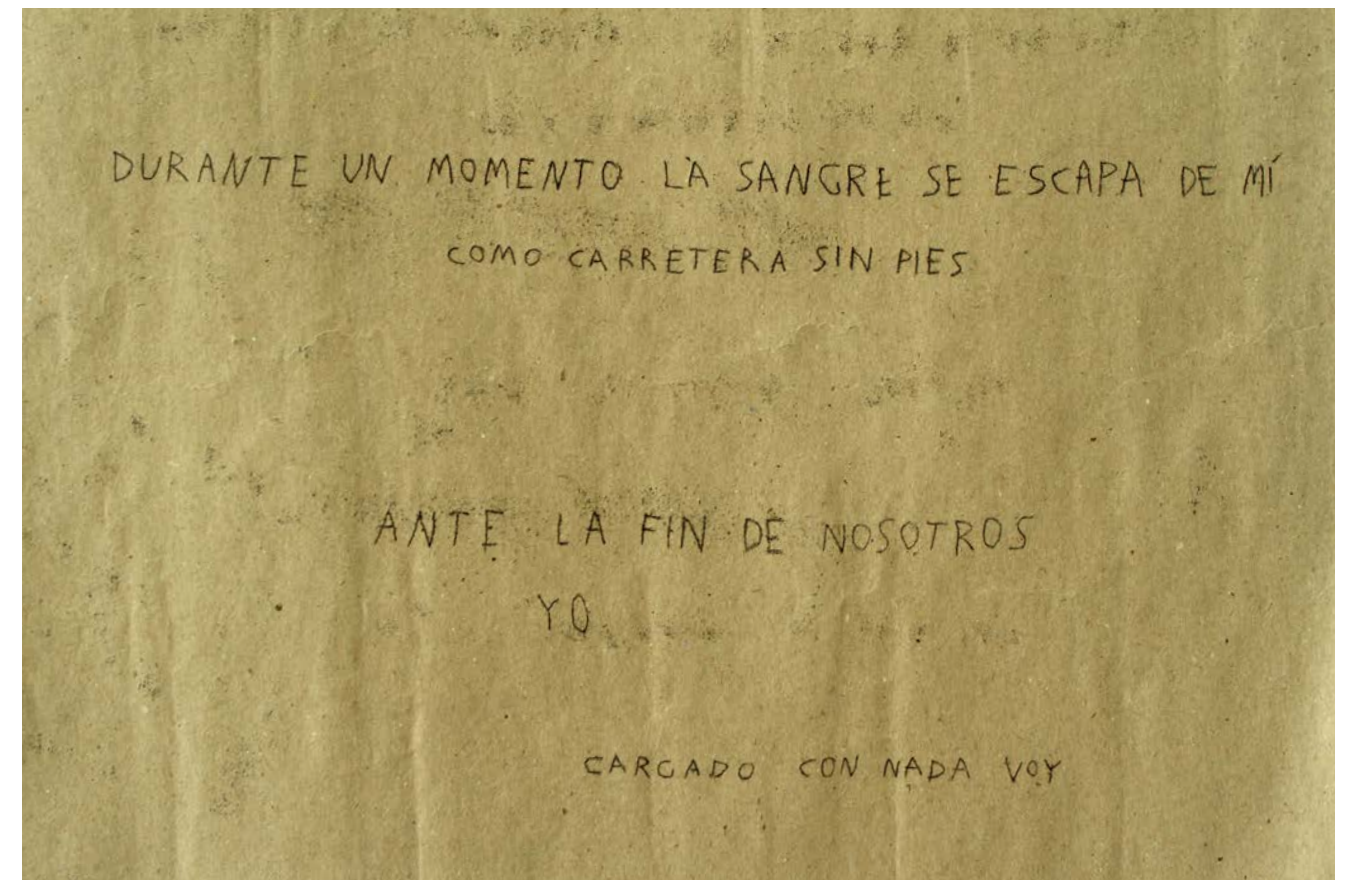 DURANTE UN MOMENTO LA SANGRE SE ESCAPA DE MÍ
COMO CARRETERA SIN PIES
ANTE LA FIN DE NOSOTROS
YO
CARGADO CON NADA VOY